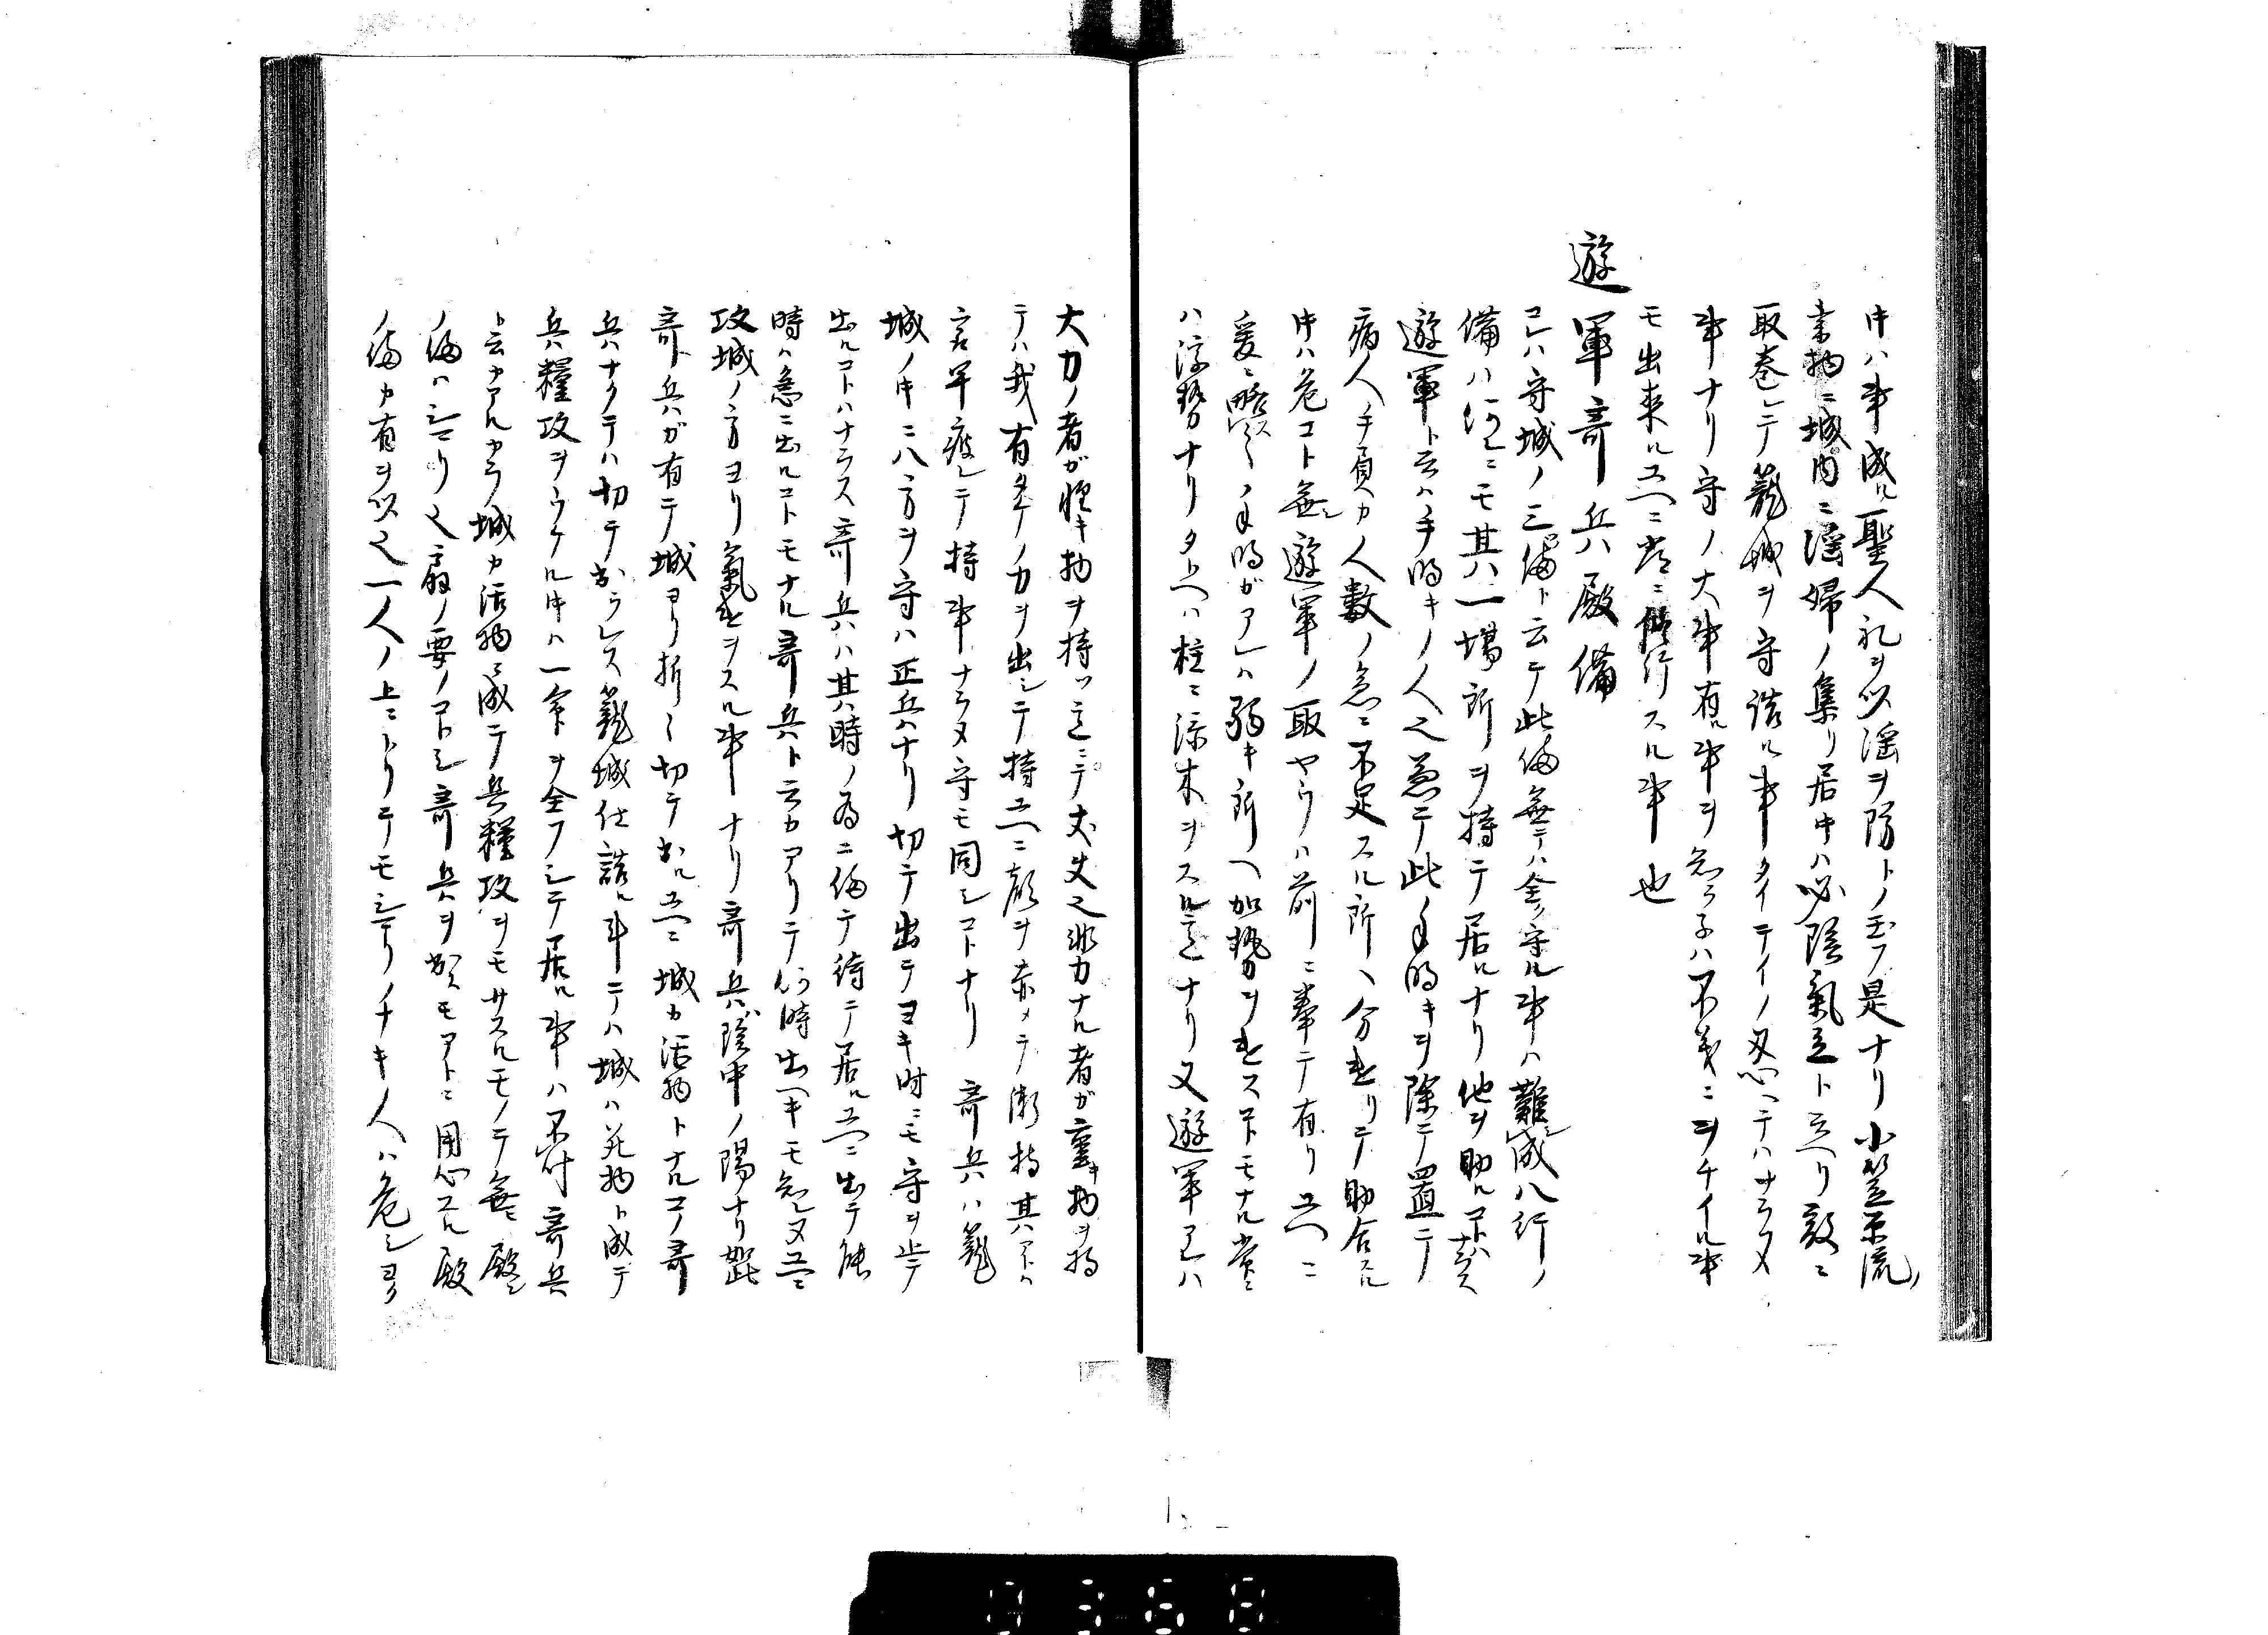 中ハ事成ル聖人礼ヲ以淫ヲ防トノ玉フ是ナリ小笠原流ノ
書物ニ城内ニ淫婦ノ集リ居中ハ必陰氣立ト云ヘリ敵ニ
取巻レテ籠城ヲ守詰ル事タイテイノ忍ヘテハナラヌ
事ナリ守ノ大事有ル事ヲ知ラ子ハ不義ニヲチイル事
モ出来ル故ニ常ニ修行スル事也
遊軍奇兵殿備
コレハ守城ノ三備ト云テ此備無テハ全ク守ル事ハ難成八行ノ
備ハ何レニモ其一場所ヲ持テ居ルナリ他ヲ助ルコトハナラス
遊軍ト云ハ手明キノ人之兼テ此手明キヲ除テ置テ
病人手負カ人数ノ急ニ不足スル所ヘ分遣リテ助合スル
中ハ危コト無シ遊軍ノ取ヤウハ前ニ奉テ有リ故ニ
爰ニ略ス手明ガアレハ弱キ所ヘ加勢ヲ遣スコトモナル常ニ
ハ浮勢ナリタトヘハ柱ニ添木ヲスル意ナリ又遊軍アレハ
大力ノ者が軽キ物ヲ持ツ意ニテ丈夫之非力ナル者が重キ物ヲ持
テハ我有タケノ力ヲ出シテ持故ニ顔ヲ赤メテ漸持其アトハ
草疲レテ持事ナラヌ守モ同シコトナリ奇兵ハ籠
城ノ中ニ八方ヲ守ハ正兵ナリ切テ出テヨキ時ニモ守ヲ步テ
出ルコトハナラス奇兵ハ其時ノ為ニ備テ待テ居ル故ニ出テ能
時ハ急ニ出ルコトモナル奇兵ト云カアリテ何時出ヘキモ知レヌ故ニ
攻城ノ方ヨリ氣遣ヲスル事ナリ奇兵ハ陰中ノ陽ナリ如此
奇兵ガ有テ城ヨリ折々切テ出ル故ニ城カ活物トナルコノ奇
兵ナクテハ切テ出ラレス籠城仕詰ル斗テハ城ハ死物ト成テ
兵糧攻ヲウケル中ハ一命ヲ全フシテ居ル事ハ不叶奇兵
ト云カアルカラ城カ活物ニ成テ兵糧攻ヲモサスルモノテ無シ殿
ノ備ハシマリ之扇ノ要ノコトシ奇兵ヲ出スモアトニ用心スル殿
ノ備カ有ヲ以之一人ノ上ニトリテモシマリノナキ人ハ危シヨク